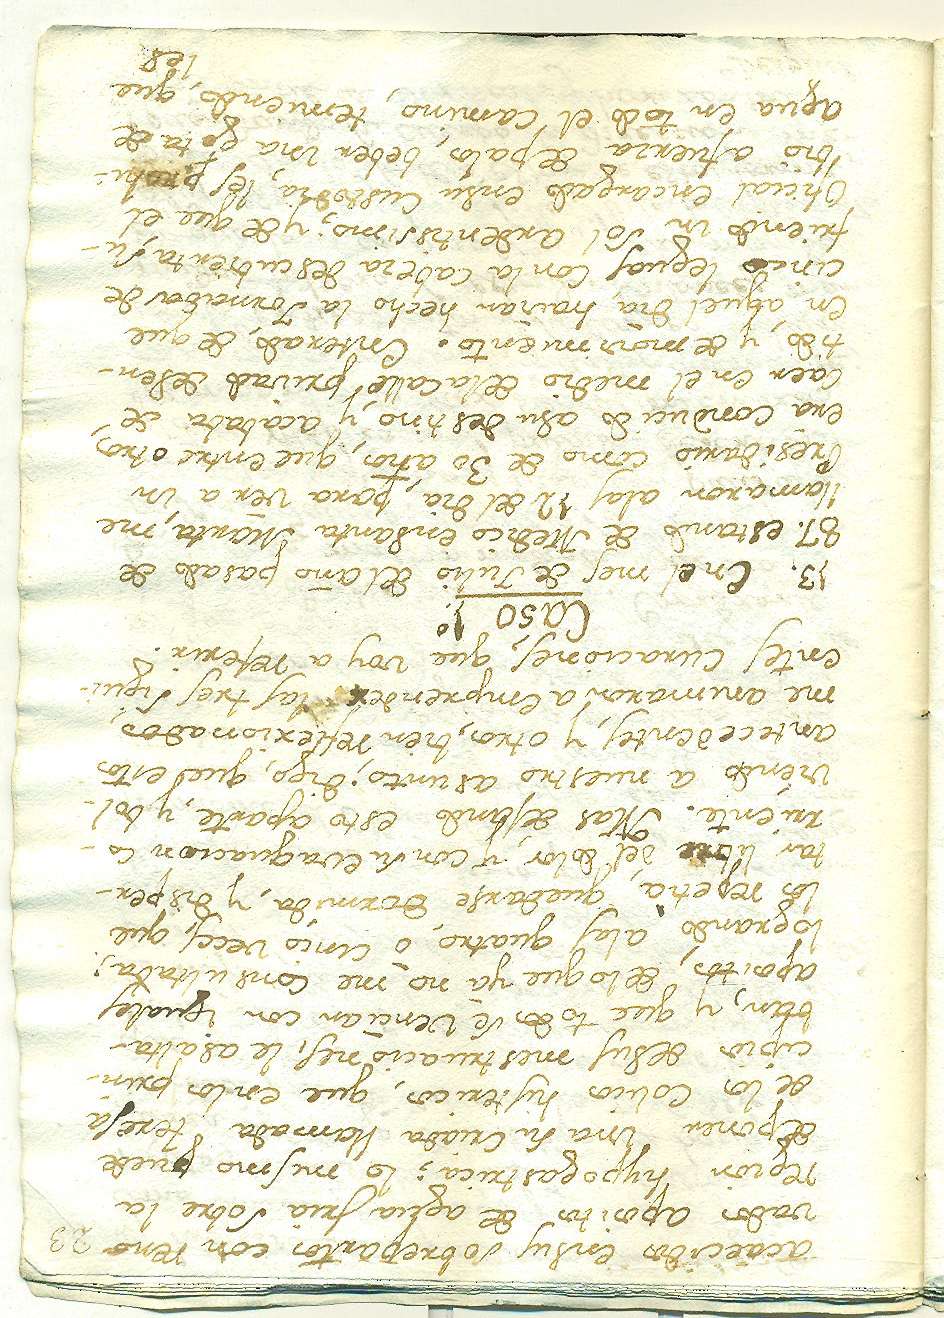 23
acaecidos en sus sobrepartos con reno
vados apositos de agua fria sobre la
region hypogastrica; lo mismo puede
deponer Una su Criada llamada Teresa
de los Colicos hystericos, que en los prin-
cipios de sus mestruaciones, le asalta-
ban, y que todos se Vencian con iguales
apositos, de lo que ya no me consultaba;
logrando a las quatro, ò cinco veces, que
los repetia, quedarse dormida, y disper-
tar libre del dolor, y con su evaquacion co-
rriente. Mas dejando esto aparte, y bol-
viendo a nuestro asunto; digo, que estos
antecedentes, y otros, bien reflexionados
me animaron à emprender las tres sigui-
entes Curaciones, que voy a referir.
Caso 1.º
13. En el mes de Julio del año pasado de
87. estando de Medico en Santa Marta, me
llamaron a las 12 del dia, para ver a un
Presidario como de 30 años, que entre otros,
era conducido a su destino, y acababa de
caer en el medio de la calle, privado de sen-
tido y de movimiento. Enterado de que
en aquel dia, havian hecho la Jornada de
cinco leguas con la Cabeza descubierta, su-
friendo un Sol ardentissimo; y de que el
Oficial encargado en su Custodia, les prohi-
bio a fuerza de palos, beber una gota de
agua en todo el camino, temiendo, que
les